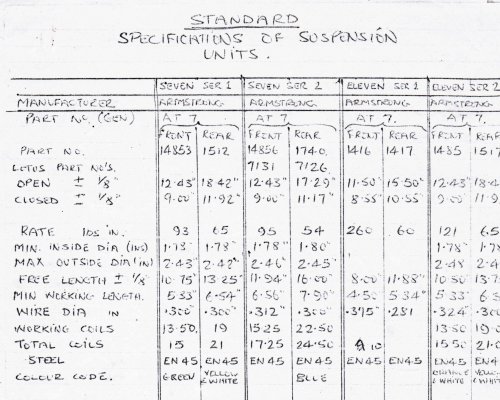 STANDARD
SPECIFICATIONS OF SUSPENSION
UNITS.
SEVEN SER 1 SEVEN SER 2 ELEVEN SER 1 ELEVEN SER 2
MANUFACTURER ARMSTRONG ARMSTRONG ARMSTRONG ARMSTRONG
PART NO. (GEN) AT 7 AT 7. AT 7. AT 7.
FRONT REAR FRONT REAR FRONT REAR FRONT REAR
PART NO. 14853 1512 14856 1740. 1416 1417 1485 1517
LOTUS PART NO'S. 7131 7126.
OPEN ± 1/8" 12.43" 18.42" 12.43" 17.29" 11.50" 15.50" 12.43" 18.4
CLOSED ± 1/8" 9.00" 11.92" 9.00" 11.17" 8.55" 10.55" 9.00" 11.9
RATE lbs in. 93 65 95 54 260 60 121 65
MIN. INSIDE DIA (INS) 1.78" 1.78" 1.78" 1.80" 1.78" 1.7
MAX OUTSIDE DIA (IN) 2.43" 2.42" 2.46" 2.45" 2.48 2.4
FREE LENGTH ± 1/8 10.75" 13.25" 11.94" 16.00" 8.00" 11.88" 10.50" 13.7
MIN WORKING LENGTH. 5.33" 6.54" 6.56" 7.90" 4.50 5.34" 5.33" 6.5
WIRE DIA IN .300" .300" .312" .300" .375" .281 .324" .300
WORKING COILS 13.50. 19 15.25 22.50 13.50 19.0
TOTAL COILS 15 21 17.25 24.50 10 15.50 21.0
STEEL EN45 EN45 EN45 EN45 EN45 EN45 EN45 EN4
COLOUR CODE. GREEN YELLOW & WHITE BLUE ORANGE & WHITE YELLOW & WHITE